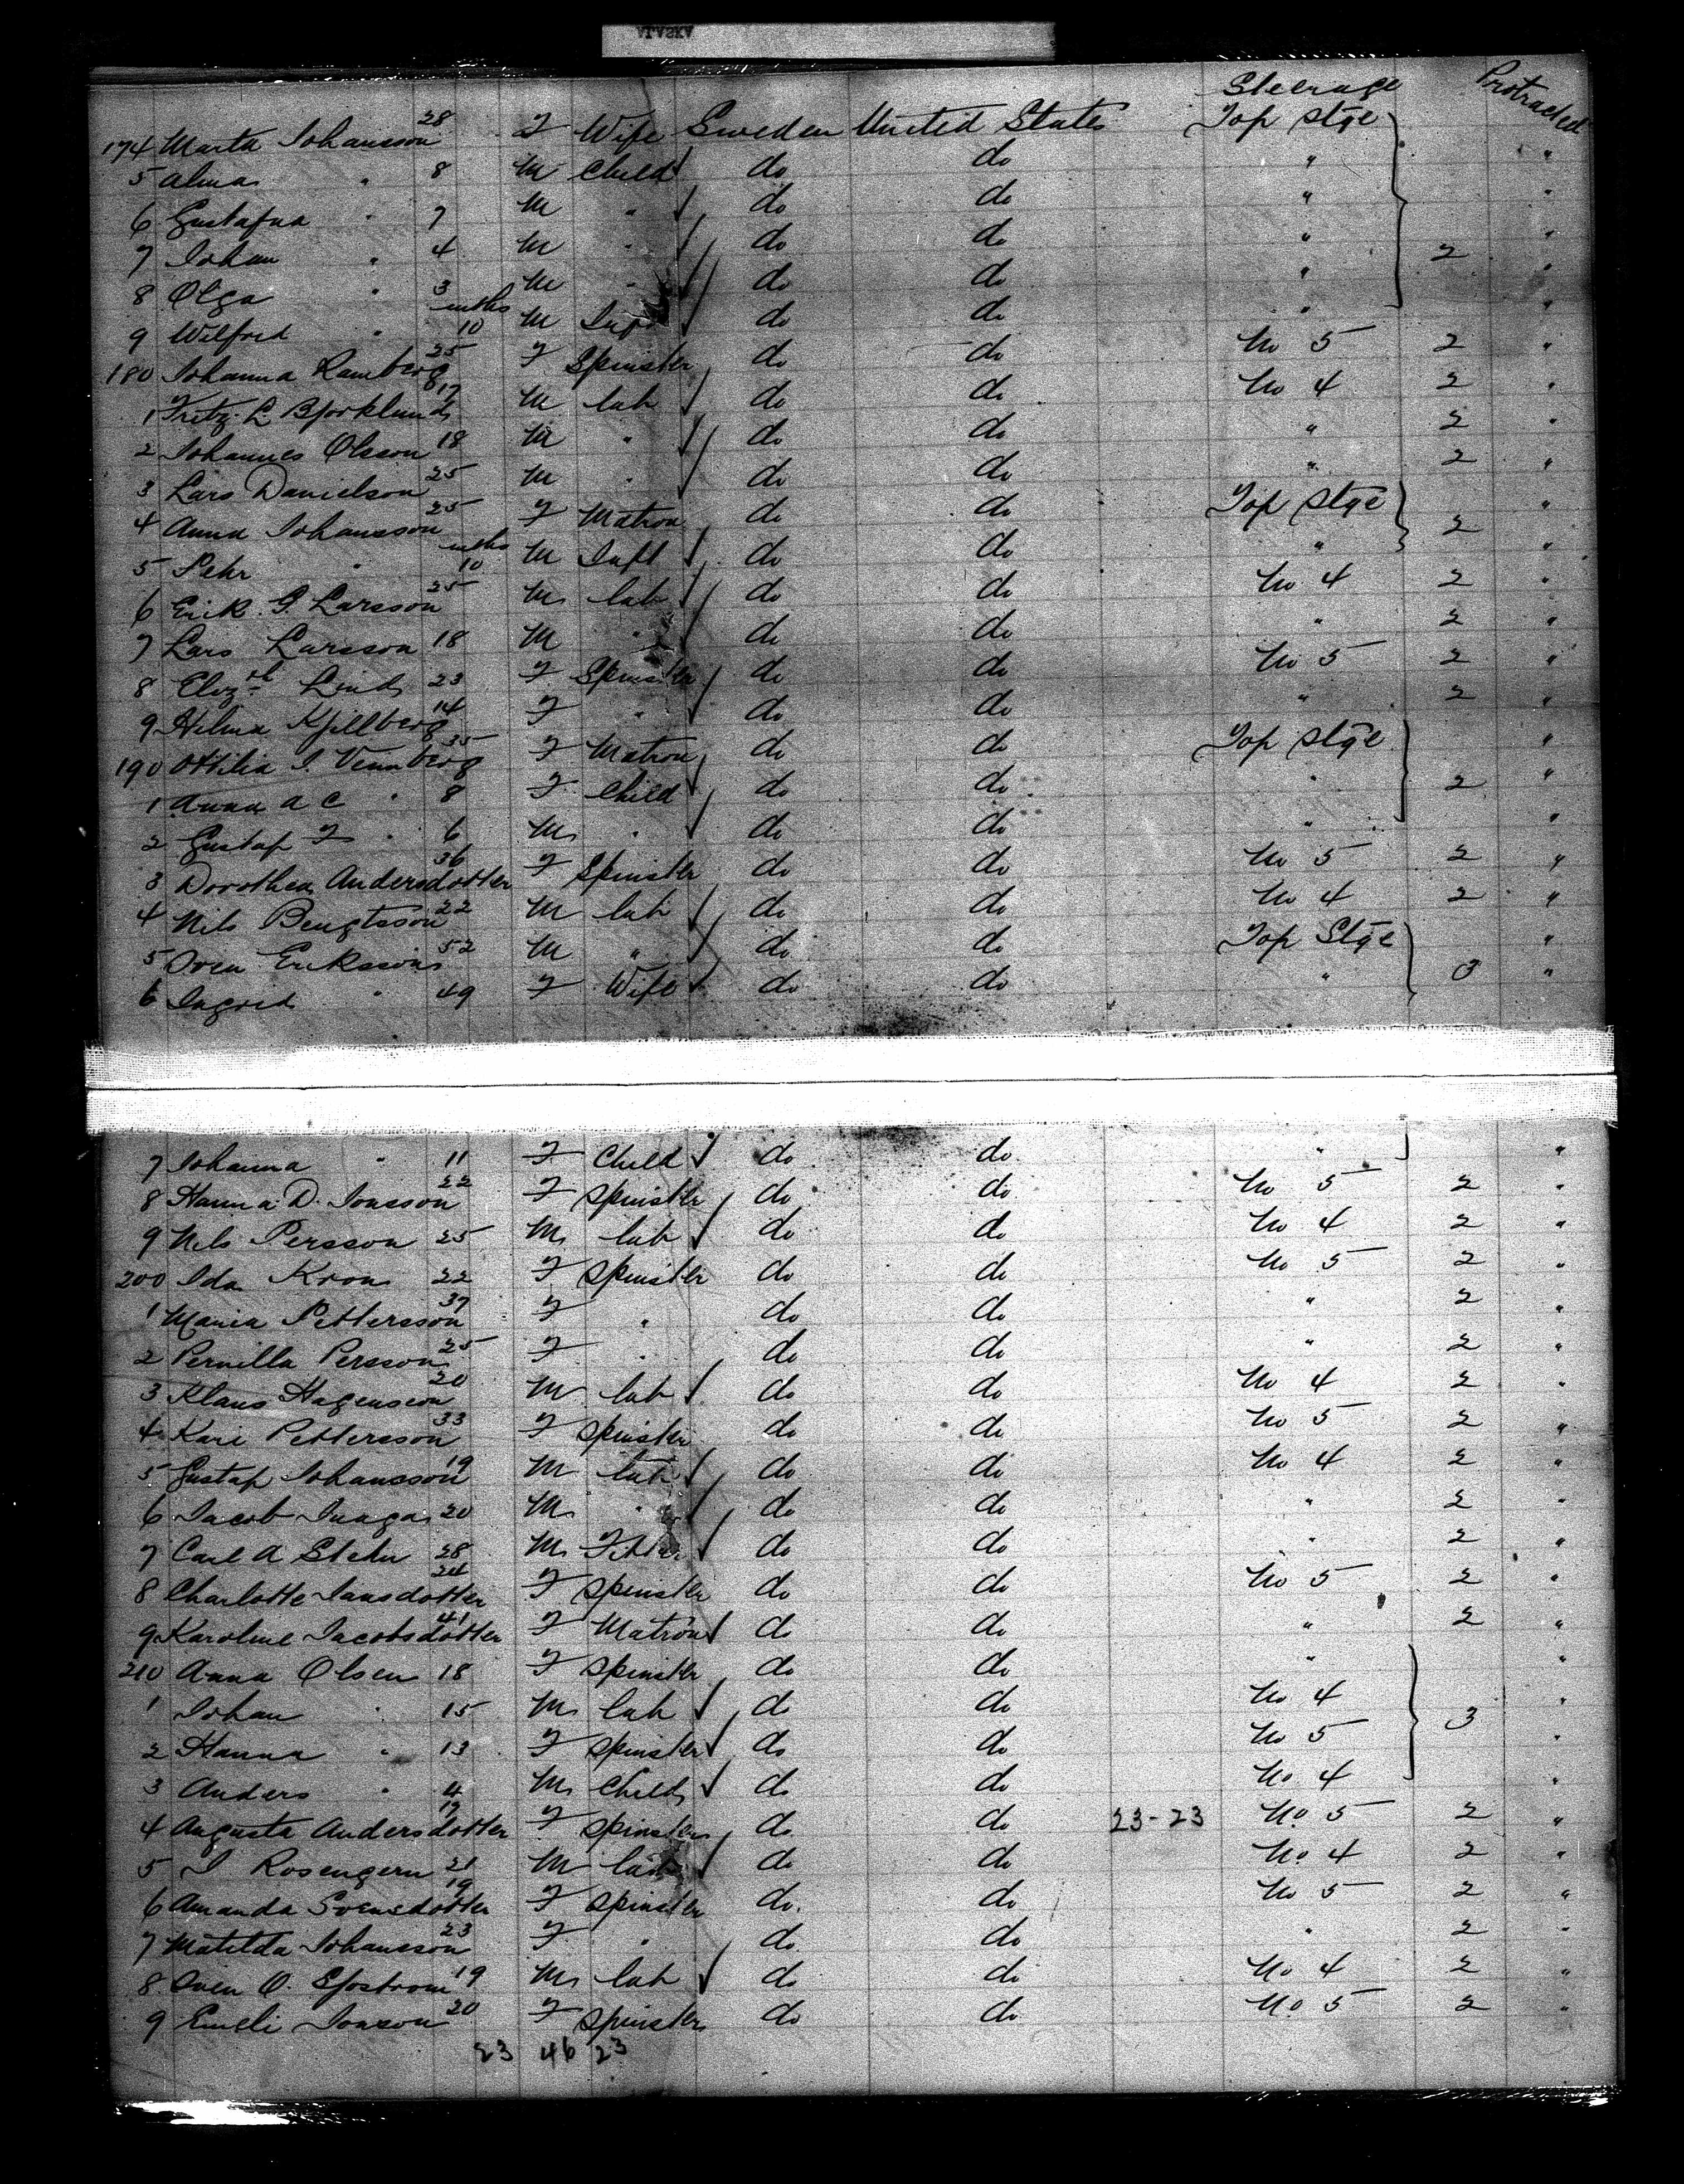 Steerage Protracted
174 Marta Johansson 28 F Wife Sweden United States Top Stge
5 Alma " 8 M Child do do " "
6 Gustafva " 7 M " do do " "
7 Johan " 4 M " do do " 2 "
8 Olga " 3 M " do do " "
9 Wilfred " mths 10 M do do " "
180 Johanna Ramberg 25 F Spinster do do No 5 2 "
1 Fritz L Bjorklund 17 M lab do do No 4 2 "
2 Johannes Olsson 18 M " do do " 2 "
3 Lars Danielson 25 M " do do " 2 "
4 Anna Johansson 25 F Matron do do Top Stge 2 "
5 Pehr " mths 10 M Inft do do " "
6 Erik G Larsson 25 M lab do do No 4 2 "
7 Lars Larsson 18 M " do do " 2 "
8 Elizth Lind 23 F Spinster do do No 5 2 "
9 Hilma Kjellberg 14 F " do do " 2 "
190 Ottilia I. Vennberg 35 F Matron do do Top Stge "
1 Anna A C " 8 F Child do do " 2 "
2 Gustaf F " 6 M " do do " "
3 Dorothea Andersdotter 36 F Spinster do do No 5 2 "
4 Nils Bengtsson 22 M lab do do No 4 2 "
5 Sven Eriksson 52 M " do do Top Stge "
6 Ingrid " 49 F Wife do do " 3 "
7 Johanna " 11 F Child do do " "
8 Hanna D. Jonsson 22 F Spinster do do No 5 2 "
9 Nils Persson 25 M lab do do No 4 2 "
200 Ida Kron 22 F Spinster do do No 5 2 "
1 Maria Pettersson 37 F " do do " 2 "
2 Pernilla Persson 25 F " do do " 2 "
3 Klaus Hagenson 20 M lab do do No 4 2 "
4 Kari Pettersson 33 F Spinster do do No 5 2 "
5 Gustaf Johansson 19 M lab do do No 4 2 "
6 Jacob 20 M " do do " 2 "
7 Carl A Stehn 28 M do do " 2 "
8 Charlotte Jansdotter 24 F Spinster do do No 5 2 "
9 Karoline Jacobsdotter 41 F Matron do do " 2 "
210 Anna Olsen 18 F Spinster do do " "
1 Johan " 15 M lab do do No 4 "
2 Hanna " 13 F Spinster do do No 5 3 "
3 Anders " 4 M Child do do No 4 "
4 Augusta Andersdotter 17 F Spinster do do 23-23 No 5 2 "
5 J Rosengern 21 M lab do do No 4 2 "
6 Amanda Svensdotter 19 F Spinster do do No 5 2 "
7 Matilda Johansson 23 F " do do " 2 "
8 Sven O. Sjostrom 19 M lab do do No 4 2 "
9 Emeli Jonson 20 F Spinster do do No 5 2 "
23 46 23